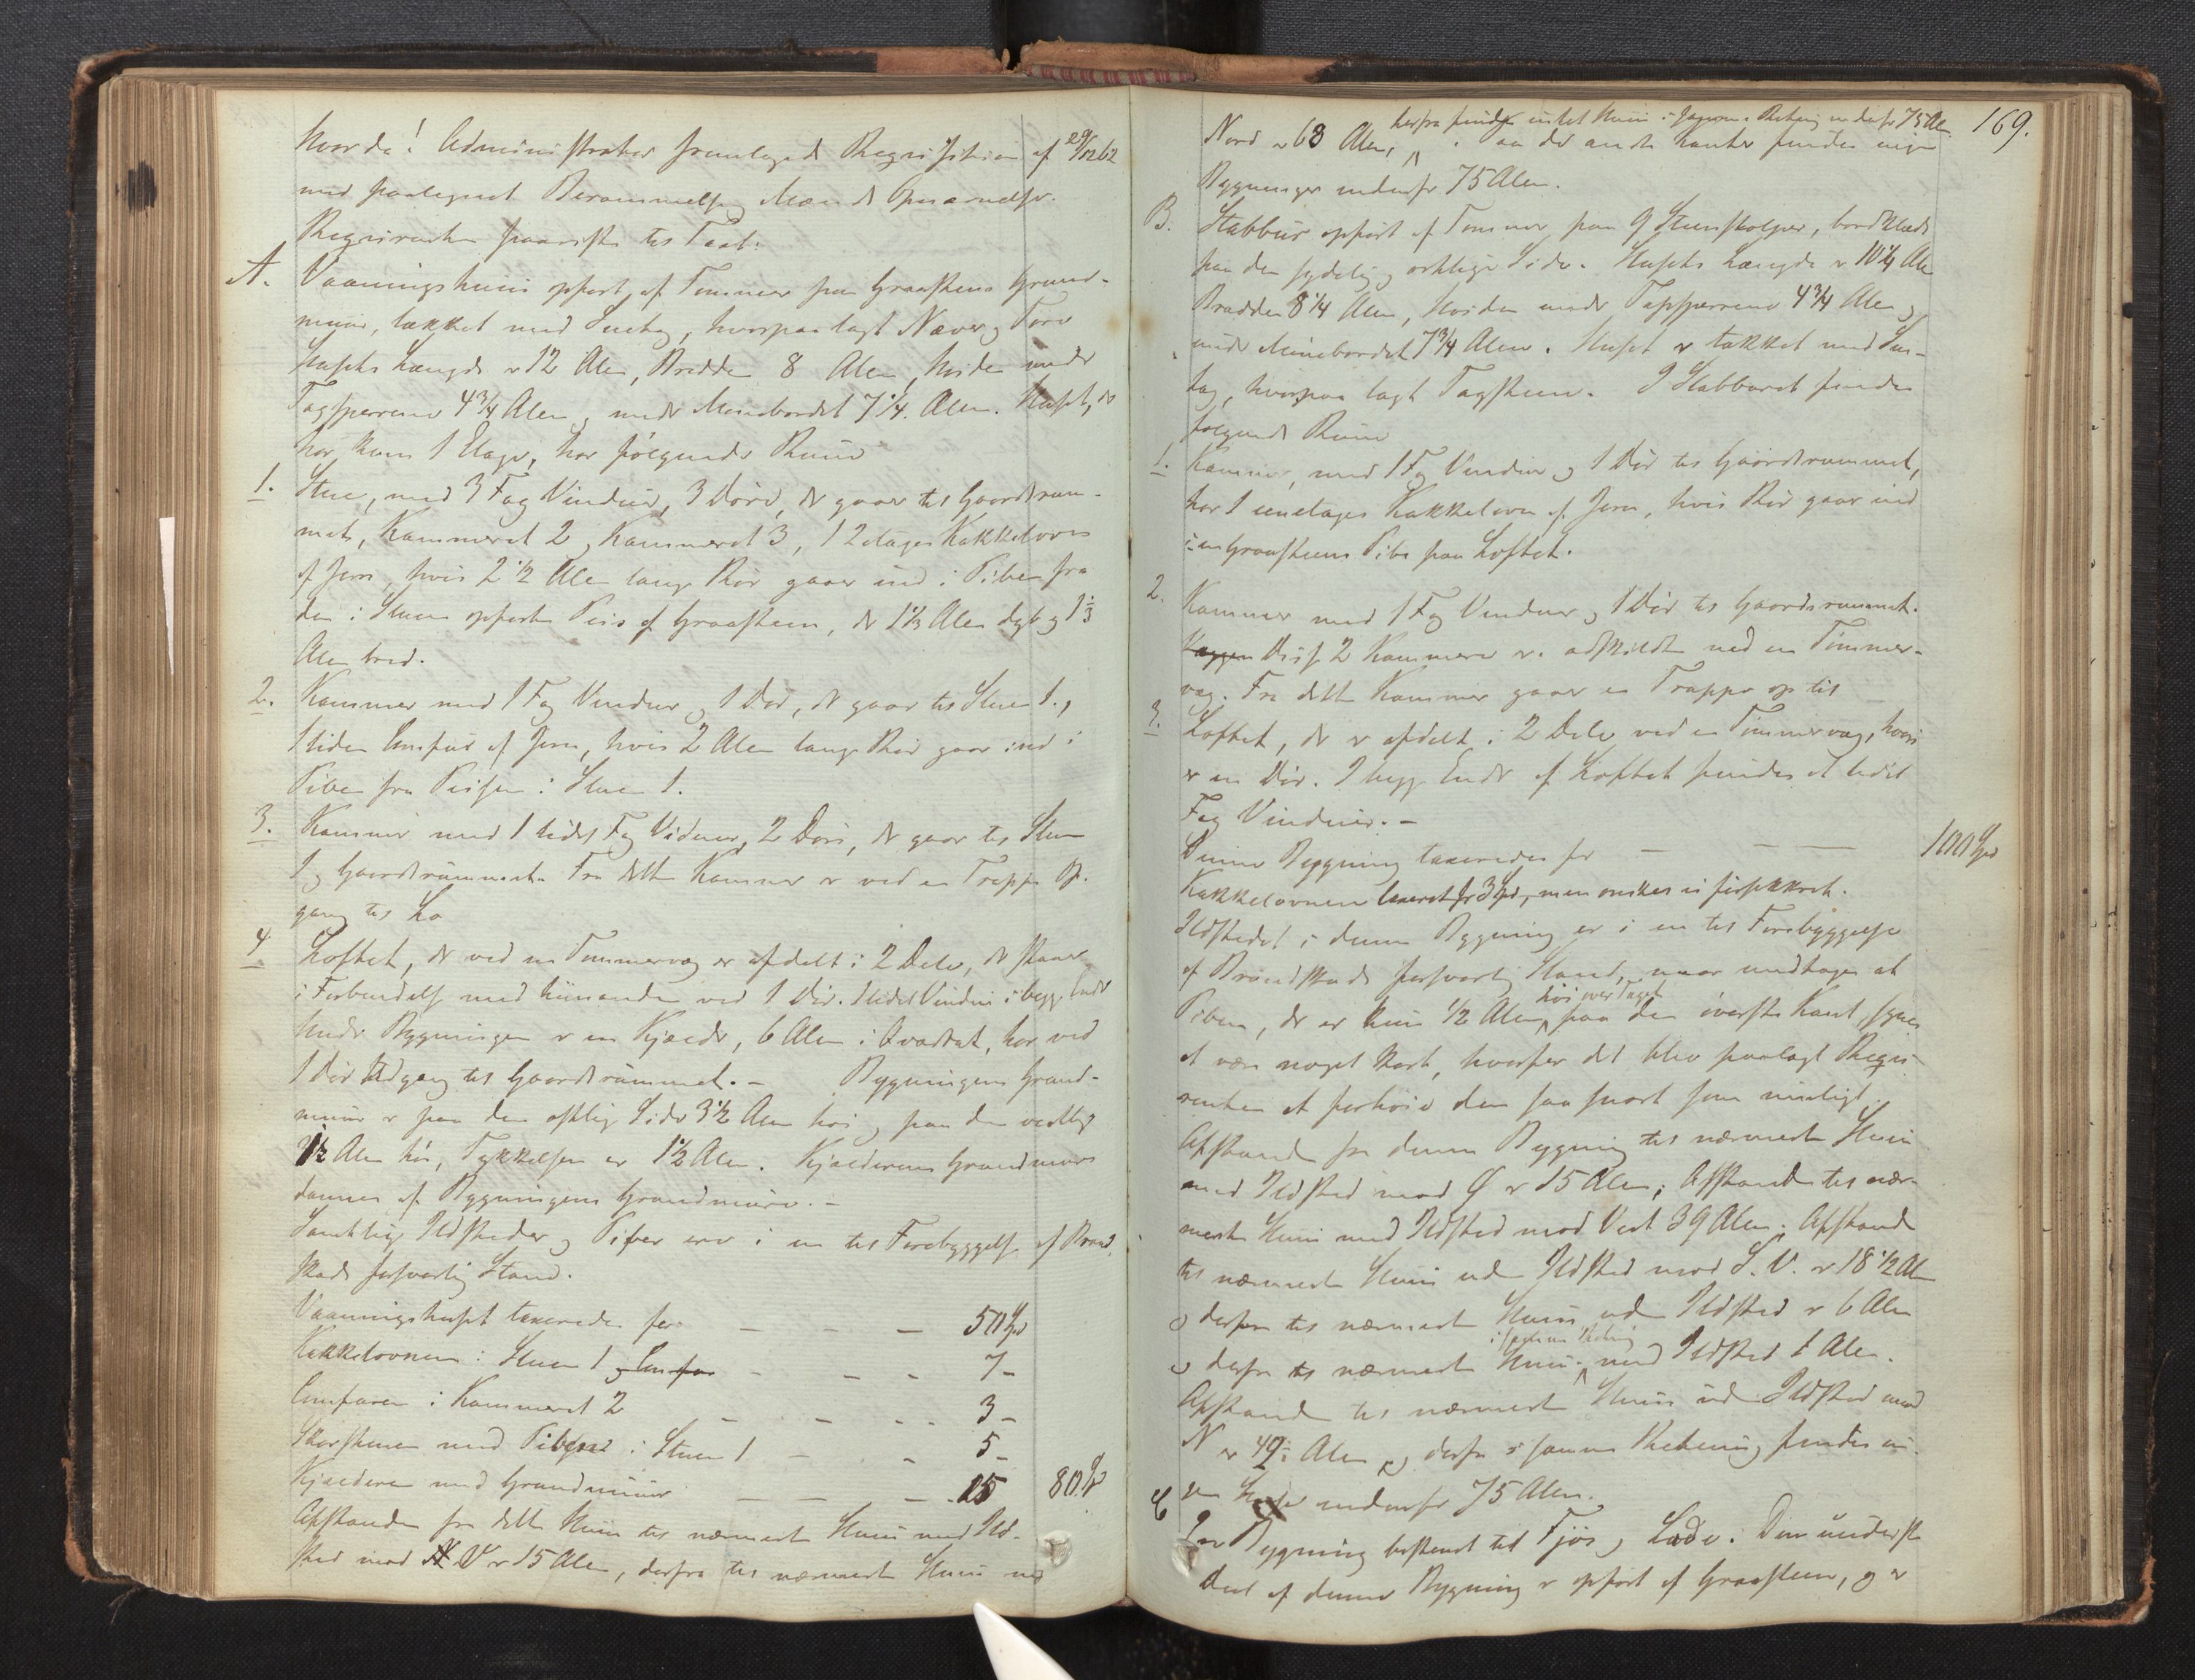 hvorda! Administrator fremlagde Reqvisition af 29/12 62
med paategnet Berammelse og Mænds Opnævnelse.
Reqvirenten paaviste til Taxt:
A. Vaaningshuus opført af Tømmer paa Graasteens Grund-
muur, tækket med Suetag, hvorpaa lagt Næver og Torv
Husets Længde er 12 Alen, Bredden 8 Alen, Høiden under
Tagsperrene 4 3/4 Alen og under Mønebordet 7 1/4 Alen. Huset, der
har kun 1 Etage, har følgende Ruum
1. Stue, med 3 Fag Vinduer, 3 Døre, der gaar til Gaardsrum-
met, Kammeret 2 og Kammeret 3, 1 2 etages Kakkelovn
af Jern, hvis 2 1/2 Alen lange Rør gaar ind i Piben fra
den i Stuen opførte Peis af Graasteen, der 1 1/3 Alen dyb og 1 1/3
Alen bred.
2. Kammer med 1 Fag Vinduer og 1 Dør, der gaar til Stuen 1.,
1 liden Comfur af Jern, hvis 2 Alen lange Rør gaar ind i
Piben fra Peisen i Stuen 1.
3. Kammer med 1 lidet Fag Viduer, 2 Døre, der gaar til Stuen
1 og Gaardsrummet. Fra dette Kammer er ved en Trappe Op-
gang til Lo
4 Loftet, der ved en Tømmervæg er afdelt i 2 Dele, der staar
i Forbindelse med hinanden ved 1 Dør. 1 lidet Vindu i begge Ender
Under Bygningen er en Kjælder, 6 Alen i Qvadrat, har ved
1 Dør Udgang til Gaardsrummet. – Bygningens Grund-
muur er paa den østlige Side 3 1/2 Alen høi og paa den vestlige
1 1/2 Alen høi, Tykkelsen er 1 1/2 Alen. Kjælderens Grundmure
dannes af Bygningens Grundmure. –
Samtlige Ildsteder og Piber ere i en til Forebyggelse af Brand-
skade forsvarlig Stand.
Vaaningshuset taxeredes for – – – 50 Spd
Kakkelovnen i Stuen 1 og Comfur – – – 7 –
Comfuren i Kammeret 2 – – – 3 –
Skorstenen med Piben i Stuen 1 – – 5 –
Kjælderen med Grundmuur – – – 15 80 Spd
Afstanden fra dette Huus til nærmeste Huus med Ild-
sted mod V er 15 Alen, derfra til nærmeste Huus med
169.
herfra findes intet Huus i samme Retning indenfor 75 Alen
Nord er 68 Alen, paa de andre Kanter findes ingen
Bygninger indenfor 75 Alen.
B. Stabbur opført af Tømmer paa 9 Steenstolper, bordklædt
paa den sydlige og østlige Side. Husets Længde er 10 1/4 Alen
Bredden 8 1/4 Alen, Høiden under Tagsperrene 4 3/4 Alen og
under Mønebordet 7 3/4 Alen. Huset er tækket med Sue-
tag, hvorpaa lagt Tagsteen. I Stabburet findes
følgende Ruum
1. Kammer, med 1 Fag Vinduer og 1 Dør til Gaardsrummet,
har 1 eenetages Kakkelovn af Jern, hvis Rør gaar ind
i en Graasteens Pibe paa Loftet.
2. Kammer med 1 Fag Vinduer og 1 Dør til Gaardsrummet.
Væggen Disse 2 Kammere er adskildte ved en Tømmer-
væg. Fra dette Kammer gaar en Trappe op til
3. Loftet, der er afdelt i 2 Dele ved en Tømmervæg, hvori
er en Dør. I begge Ender af Loftet findes et lidet
Fag Vinduer. –
Denne Bygning taxeredes for – – – 100 Spd
Kakkelovnen taxeret for 3 Spd, men ønskes ei forsikkret.
Ildstedet i denne Bygning er i en til Forebyggelse
af Brandskade forsvarlig Stand, naar undtages at
høi over Taget
Piben, der er kun 1/2 Alen paa den øverste Kant, synes
at være noget kort, hvorfor det blev paalagt Reqvi-
renten at forhøie den saa snart som muligt.
Afstanden fra denne Bygning til nærmeste Huus
med Ildsted mod Ø er 15 Alen; Afstanden til nær-
meste Huus med Ildsted mod Vest 39 Alen; Afstand
til nærmeste Huus uden Ildsted mod S.V. er 18 1/2 Alen
og derfra til nærmeste Huus uden Ildsted er 6 Alen
i samme Retning
og derfra til nærmeste Huus med Ildsted 1 Alen.
Afstand til nærmeste Huus uden Ildsted mod
N er 49 Alen og derfra i samme Retning findes in-
gen Huse indenfor 75 Alen.
C En Bygning bestemt til Fjøs og Lade. Den underste
Deel af denne Bygning er opført af Graasteen, og er